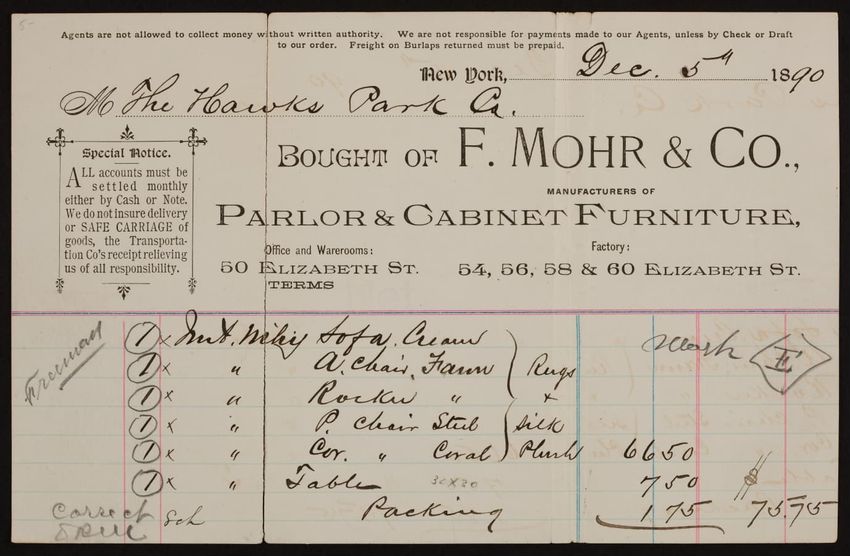 Agents are not allowed to collect money without written authority. We are not responsible for payments made to our Agents, unless by Check or Draft
to our order. Freight on Burlaps returned must be prepaid.
New York, Dec. 5th 1890
M The Hawks Park Co.
Special Notice.
ALL accounts must be
settled monthly
either by Cash or Note.
We do not insure delivery
or SAFE CARRIAGE of
goods, the Transporta-
tion Co's receipt relieving
us of all responsibility.
BOUGHT OF F. MOHR & CO.,
MANUFACTURERS OF
PARLOR & CABINET FURNITURE,
Office and Warerooms:
50 ELIZABETH ST.
Factory:
54, 56, 58 & 60 ELIZABETH ST.
TERMS
Freeman
1 x Sofa, Cream
1 x " A. Chair, Fawn Rugs
1 x " Rocker " +
1 x " P. chair Steel Silk
1 x " Cor. " Coral Plush 66 50
1 x " Table 30x30 7 50
Packing 1 75 75.75
Mark E
Correct